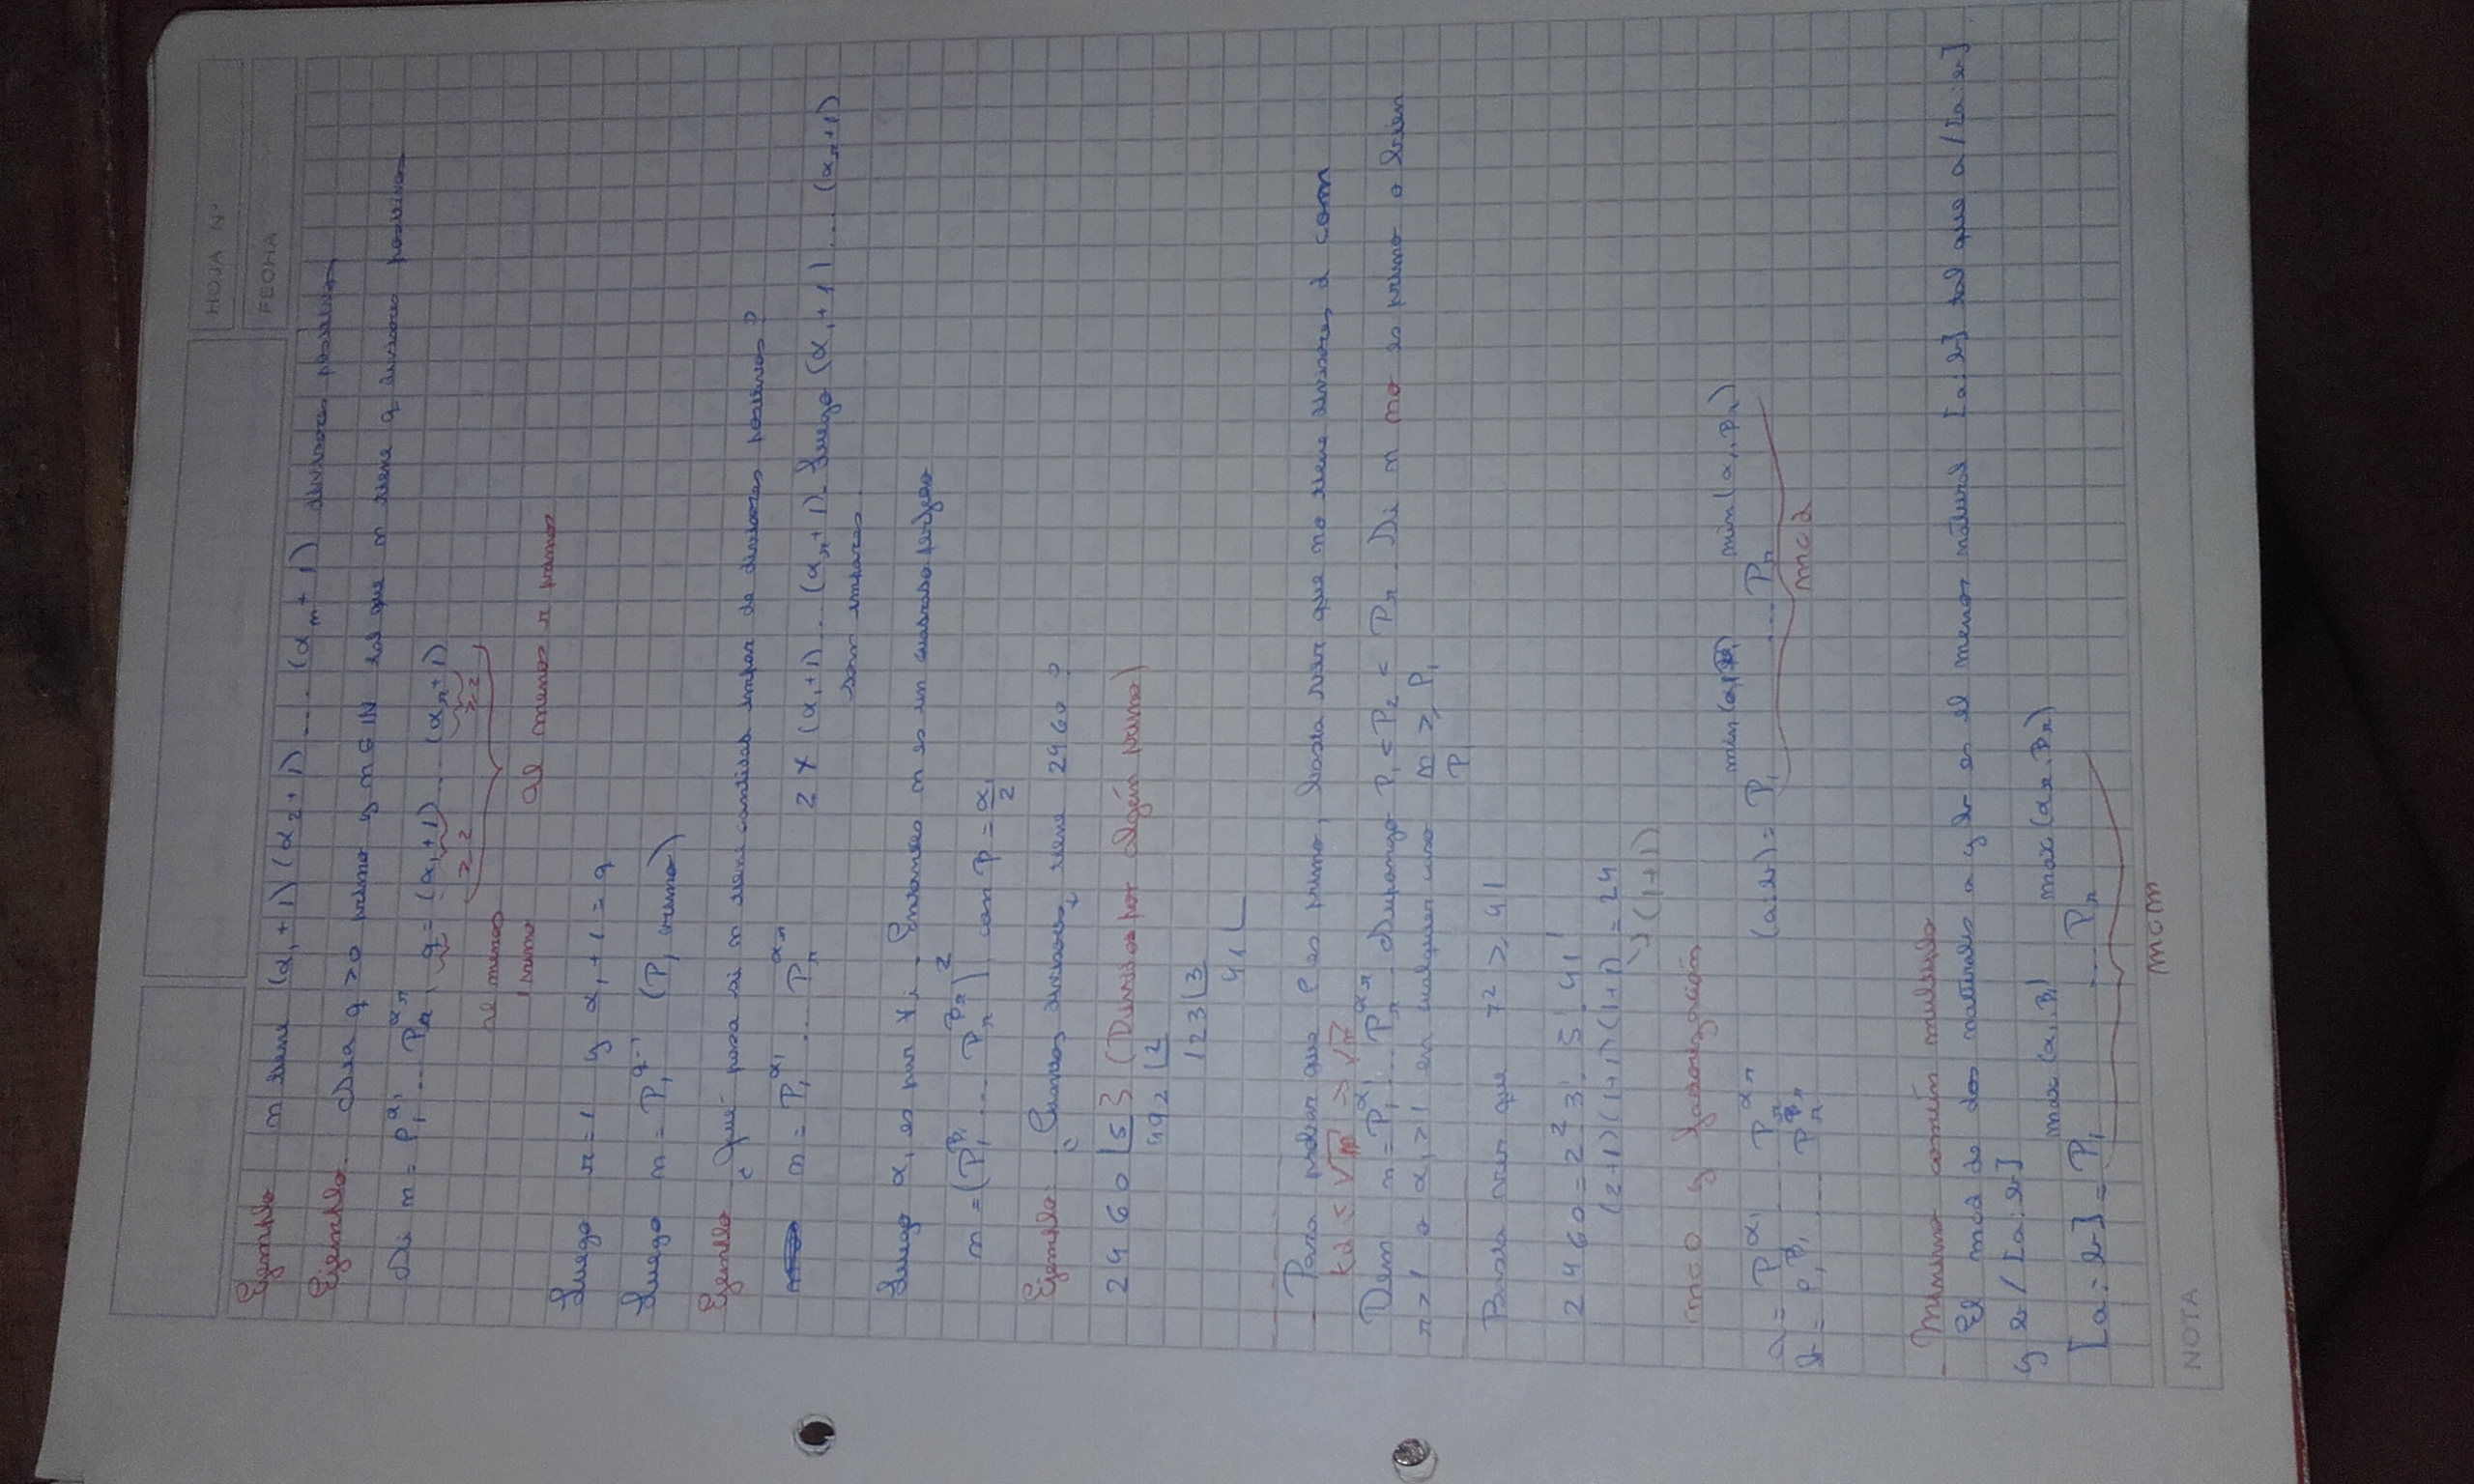 HOJA N°
FECHA
Ejemplo n tiene (α₁+1)(α₂+1)....(αₙ+1) divisores positivos
Ejemplo. Sea q>0 primo y n∈ℕ tal que n tiene q divisores positivos
Si n = P₁^α₁ ... Pᵣ^αᵣ, q = (α₁+1)...(αᵣ+1)
≥2 ≥2
al menos
1 primo al menos r primos
Luego r=1 y α₁+1=q
Luego n = P₁^q-1 (P₁ primo)
Ejemplo ¿Qué pasa si n tiene cantidad impar de divisores positivos?
n = P₁^α₁ ... Pᵣ^αᵣ 2 ∤ (α₁+1)...(αᵣ+1). Luego (α₁+1)...(αᵣ+1)
son impares
Luego α₁ es par ∀i. Entonces n es un cuadrado perfecto
n = (P₁^β₁ ... Pᵣ^βᵣ)² con β = α₁/2
Ejemplo: ¿Cuantos divisores₊ tiene 2460?
2460 |5 } (Dividos por algún primo)
492 |2
123 |3
41 |
- Para probar que P es primo, basta ver que no tiene divisores d con
Dem n = P₁^α₁ ... Pᵣ^αᵣ. Supongo P₁ < P₂ < Pᵣ. Si n no es primo o bien
r>1 o α₁>1 en cualquier caso n/P ≥ P₁
Basta ver que 7² ≥ 41
2460 = 2².3¹.5¹.41¹
(2+1)(1+1)(1+1) = 24
↳(1+1)
mcd y factorización
a = P₁^α₁ ... Pᵣ^αᵣ (a:b) = P₁^min(α₁,β₁) ... Pᵣ^min(α₁.βᵣ)
b = P₁^β₁ ... Pᵣ^βᵣ mcd
- Minimo común multiplo
El mcd de dos naturales a y b es el menor natural [a:b] tal que a/[a:b]
y b/[a:b]
[a:b] = P₁^max(α₁.β₁) ... Pᵣ^max(αᵣ.βᵣ)
mcm
NOTA